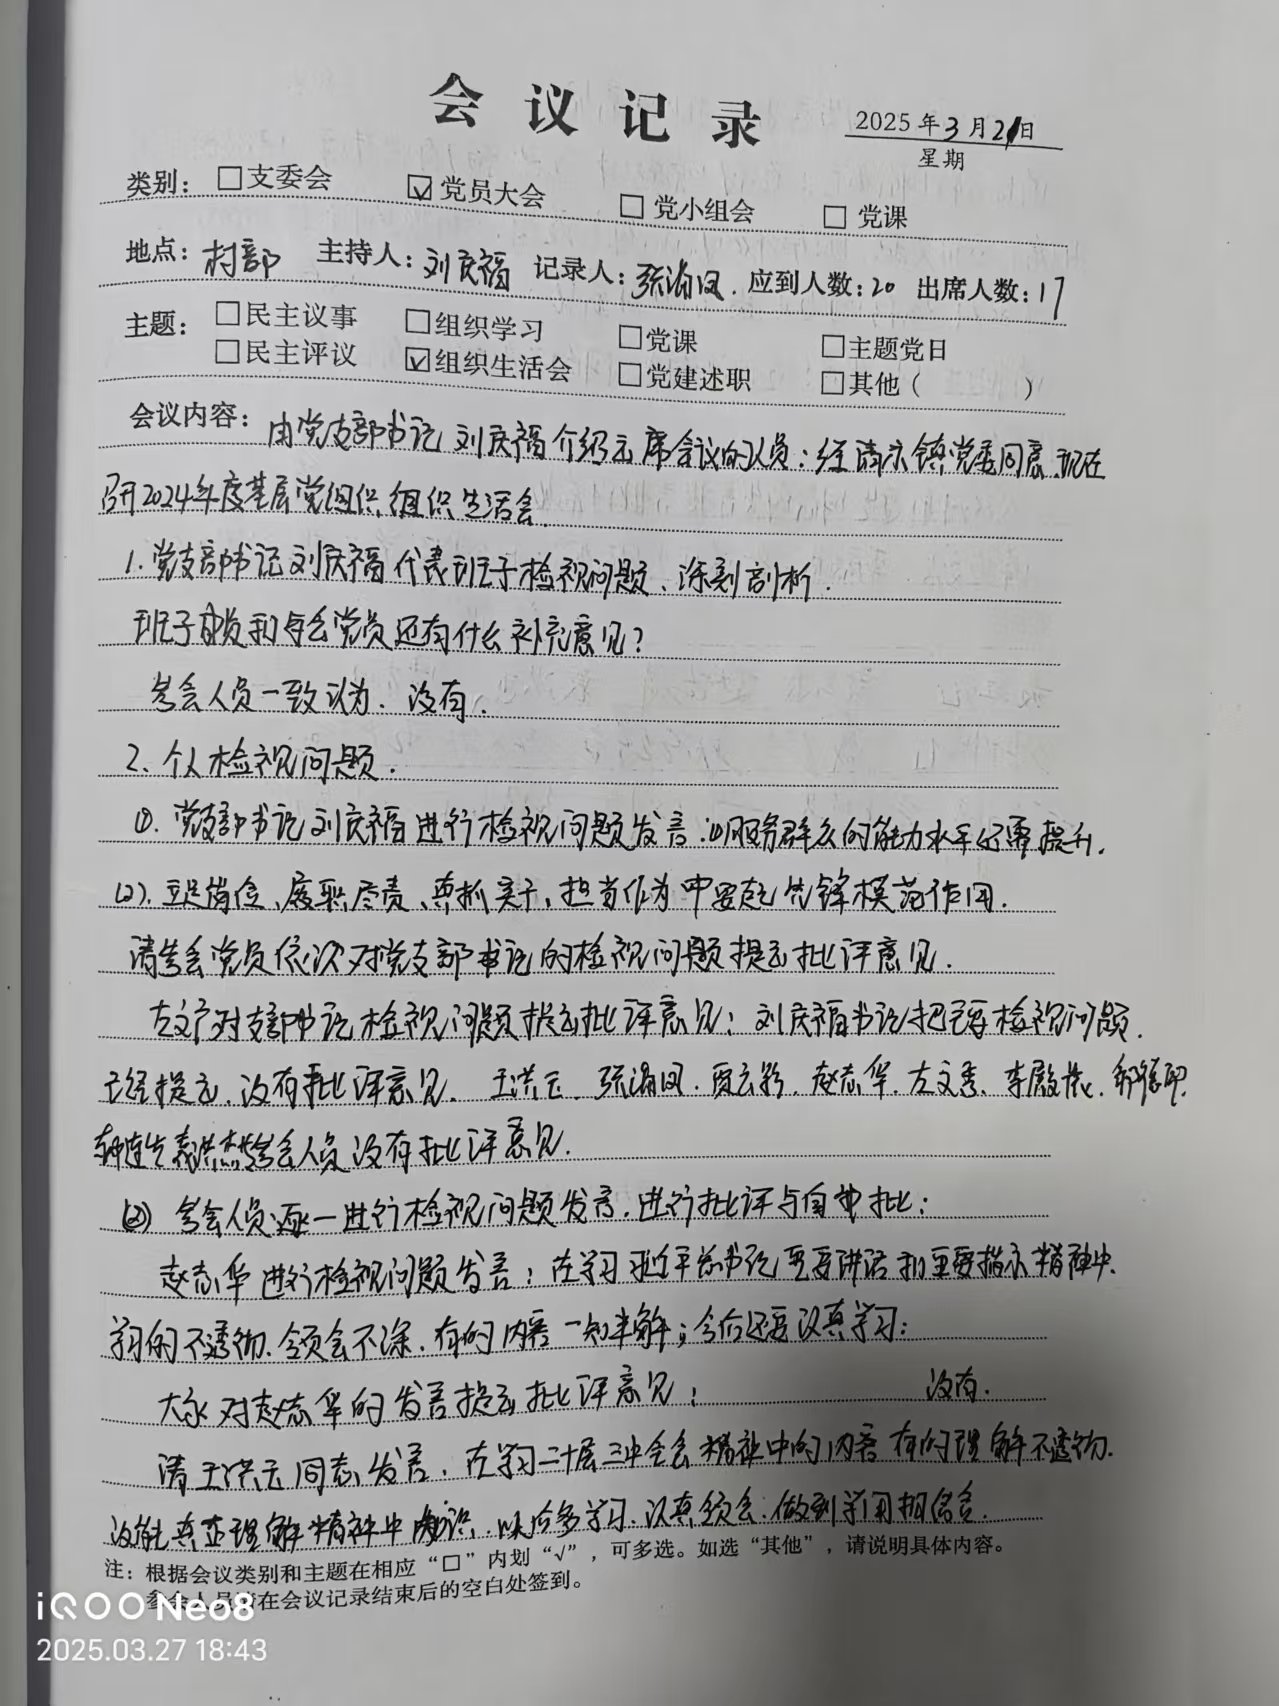 会议记录
2025年3月21日
星期
类别：□支委会 ☑党员大会 □党小组会 □党课
地点：村部 主持人：刘庆福 记录人：张海凤. 应到人数：20 出席人数：17
主题：□民主议事 □组织学习 □党课 □主题党日
□民主评议 ☑组织生活会 □党建述职 □其他（ ）
会议内容：由党支部书记刘庆福介绍出席会议的人员；经请示镇党委同意,现在
召开2024年度基层党组织组织生活会.
1.党支部书记刘庆福代表班子检视问题、深刻剖析.
班子成员和每会党员还有什么补充意见?
参会人员一致认为.没有.
2、个人检视问题.
①.党支部书记刘庆福进行检视问题发言:⑴服务群众的能力水平仍需提升.
(2).立足岗位、履职尽责、真抓实干,担当作为中要起先锋模范作用.
请参会党员依次对党支部书记的检视问题提出批评意见.
左文广对支部书记检视问题提出批评意见:刘庆福书记把主要检视问题.
已经提出,没有批评意见、王洪玉、张海凤.贾云彩.赵志华.左文秀、
参会人员没有批评意见.
(2) 参会人员逐一进行检视问题发言.进行批评与自我批:
赵志华进行检视问题发言:在学习习近平总书记重要讲话和重要指示精神中.
学习的不透彻.领会不深.有的内容一知半解;今后还要认真学习:
大家对赵志华的发言提出批评意见: 没有.
请王洪玉同志发言.在学习二十届三中全会精神中的内容有的理解不透彻.
没能真正理解精神中内涵.以后多学习.认真领会.做到学用相结合.
注：根据会议类别和主题在相应“□”内划“√”，可多选。如选“其他”，请说明具体内容。
参会人员请在会议记录结束后的空白处签到。
iQOO Neo8
2025.03.27 18:43